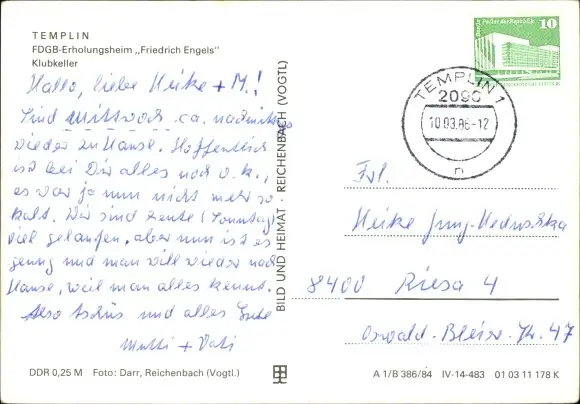 TEMPLIN
FDGB-Erholungsheim „Friedrich Engels"
Klubkeller
Hallo, liebe Heike + M.!
Sind Mittwoch ca. nachmittag
wieder zu Hause. Hoffentlich
ist bei Dir alles noch o.k.,
es war ja nun nicht mehr so
kalt. Wir sind heute (Sonntag)
viel gelaufen, aber nun ist es
genug und man will wieder nach
Hause, weil man alles kennt.
Also tschüs und alles Gute
Mutti + Vati
DDR 0,25 M Foto: Darr, Reichenbach (Vogtl.)
BILD UND HEIMAT · REICHENBACH (VOGTL)
Berlin Palast der Republik 10
TEMPLIN 1
2090
10.03.86-12
n
Frl.
Heike Jung-
8400 Riesa 4
Str. 47
A 1/B 386/84 IV-14-483 01 03 11 178 K